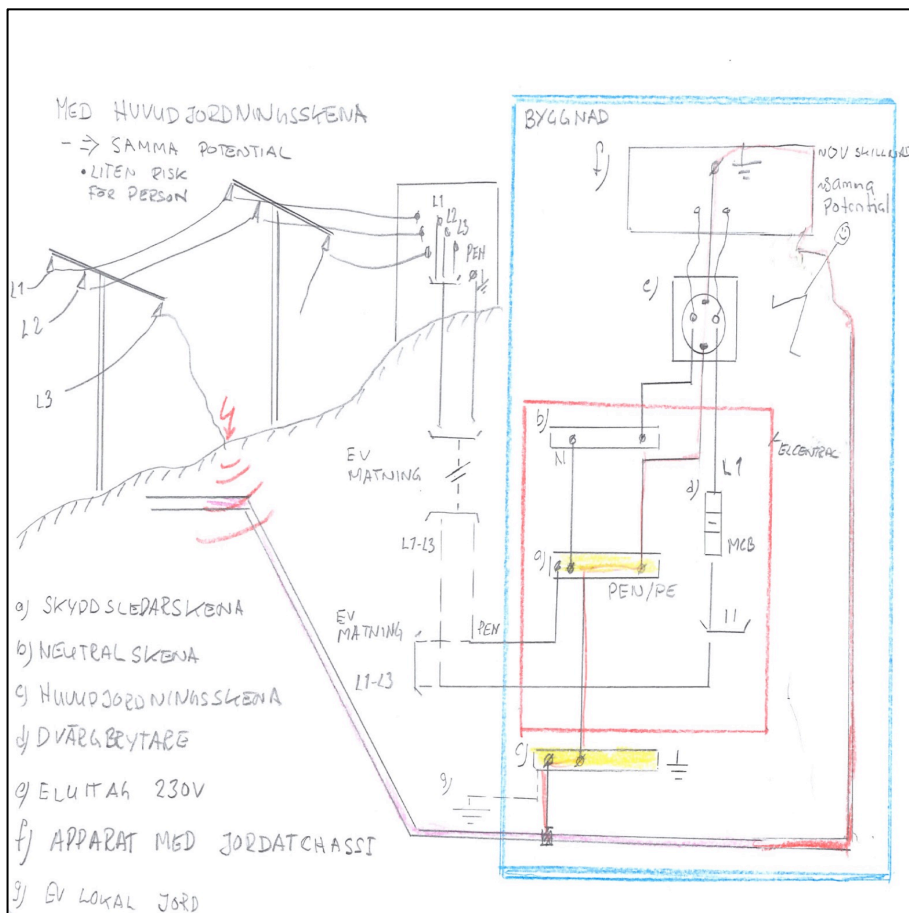 MED HUVUDJORDNINGSSKENA
- => SAMMA POTENTIAL
• LITEN RISK
FÖR PERSON
L1
L2
L3
L1
L2
L3
PEN
EV
MATNING
L1-L3
EV
MATNING
PEN
L1-L3
BYGGNAD
f)
NOV SKILLNAD
Samma
Potential
e)
b)
N
ELCENTRAL
L1
d)
MCB
a)
PEN/PE
c)
g)
a) SKYDDSLEDARSKENA
b) NEUTRALSKENA
c) HUVUDJORDNINGSSKENA
d) DVÄRGBRYTARE
e) ELUTTAG 230V
f) APPARAT MED JORDATCHASSI
g) EV LOKAL JORD